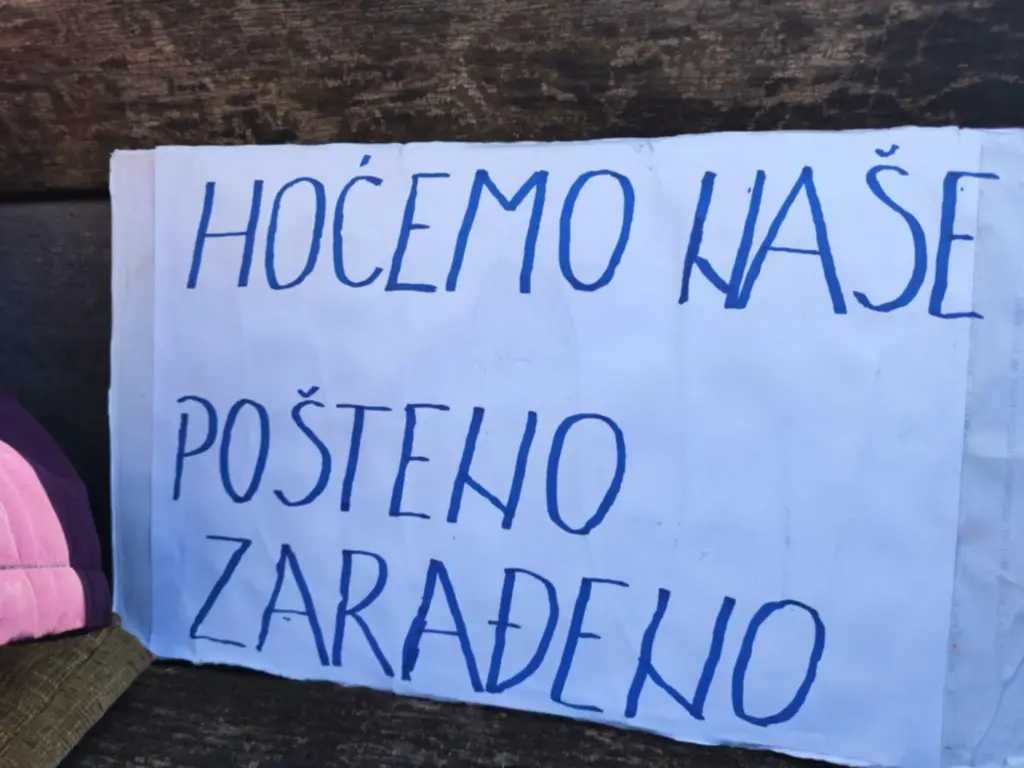 HOĆEMO NAŠE
POŠTENO
ZARAĐENO